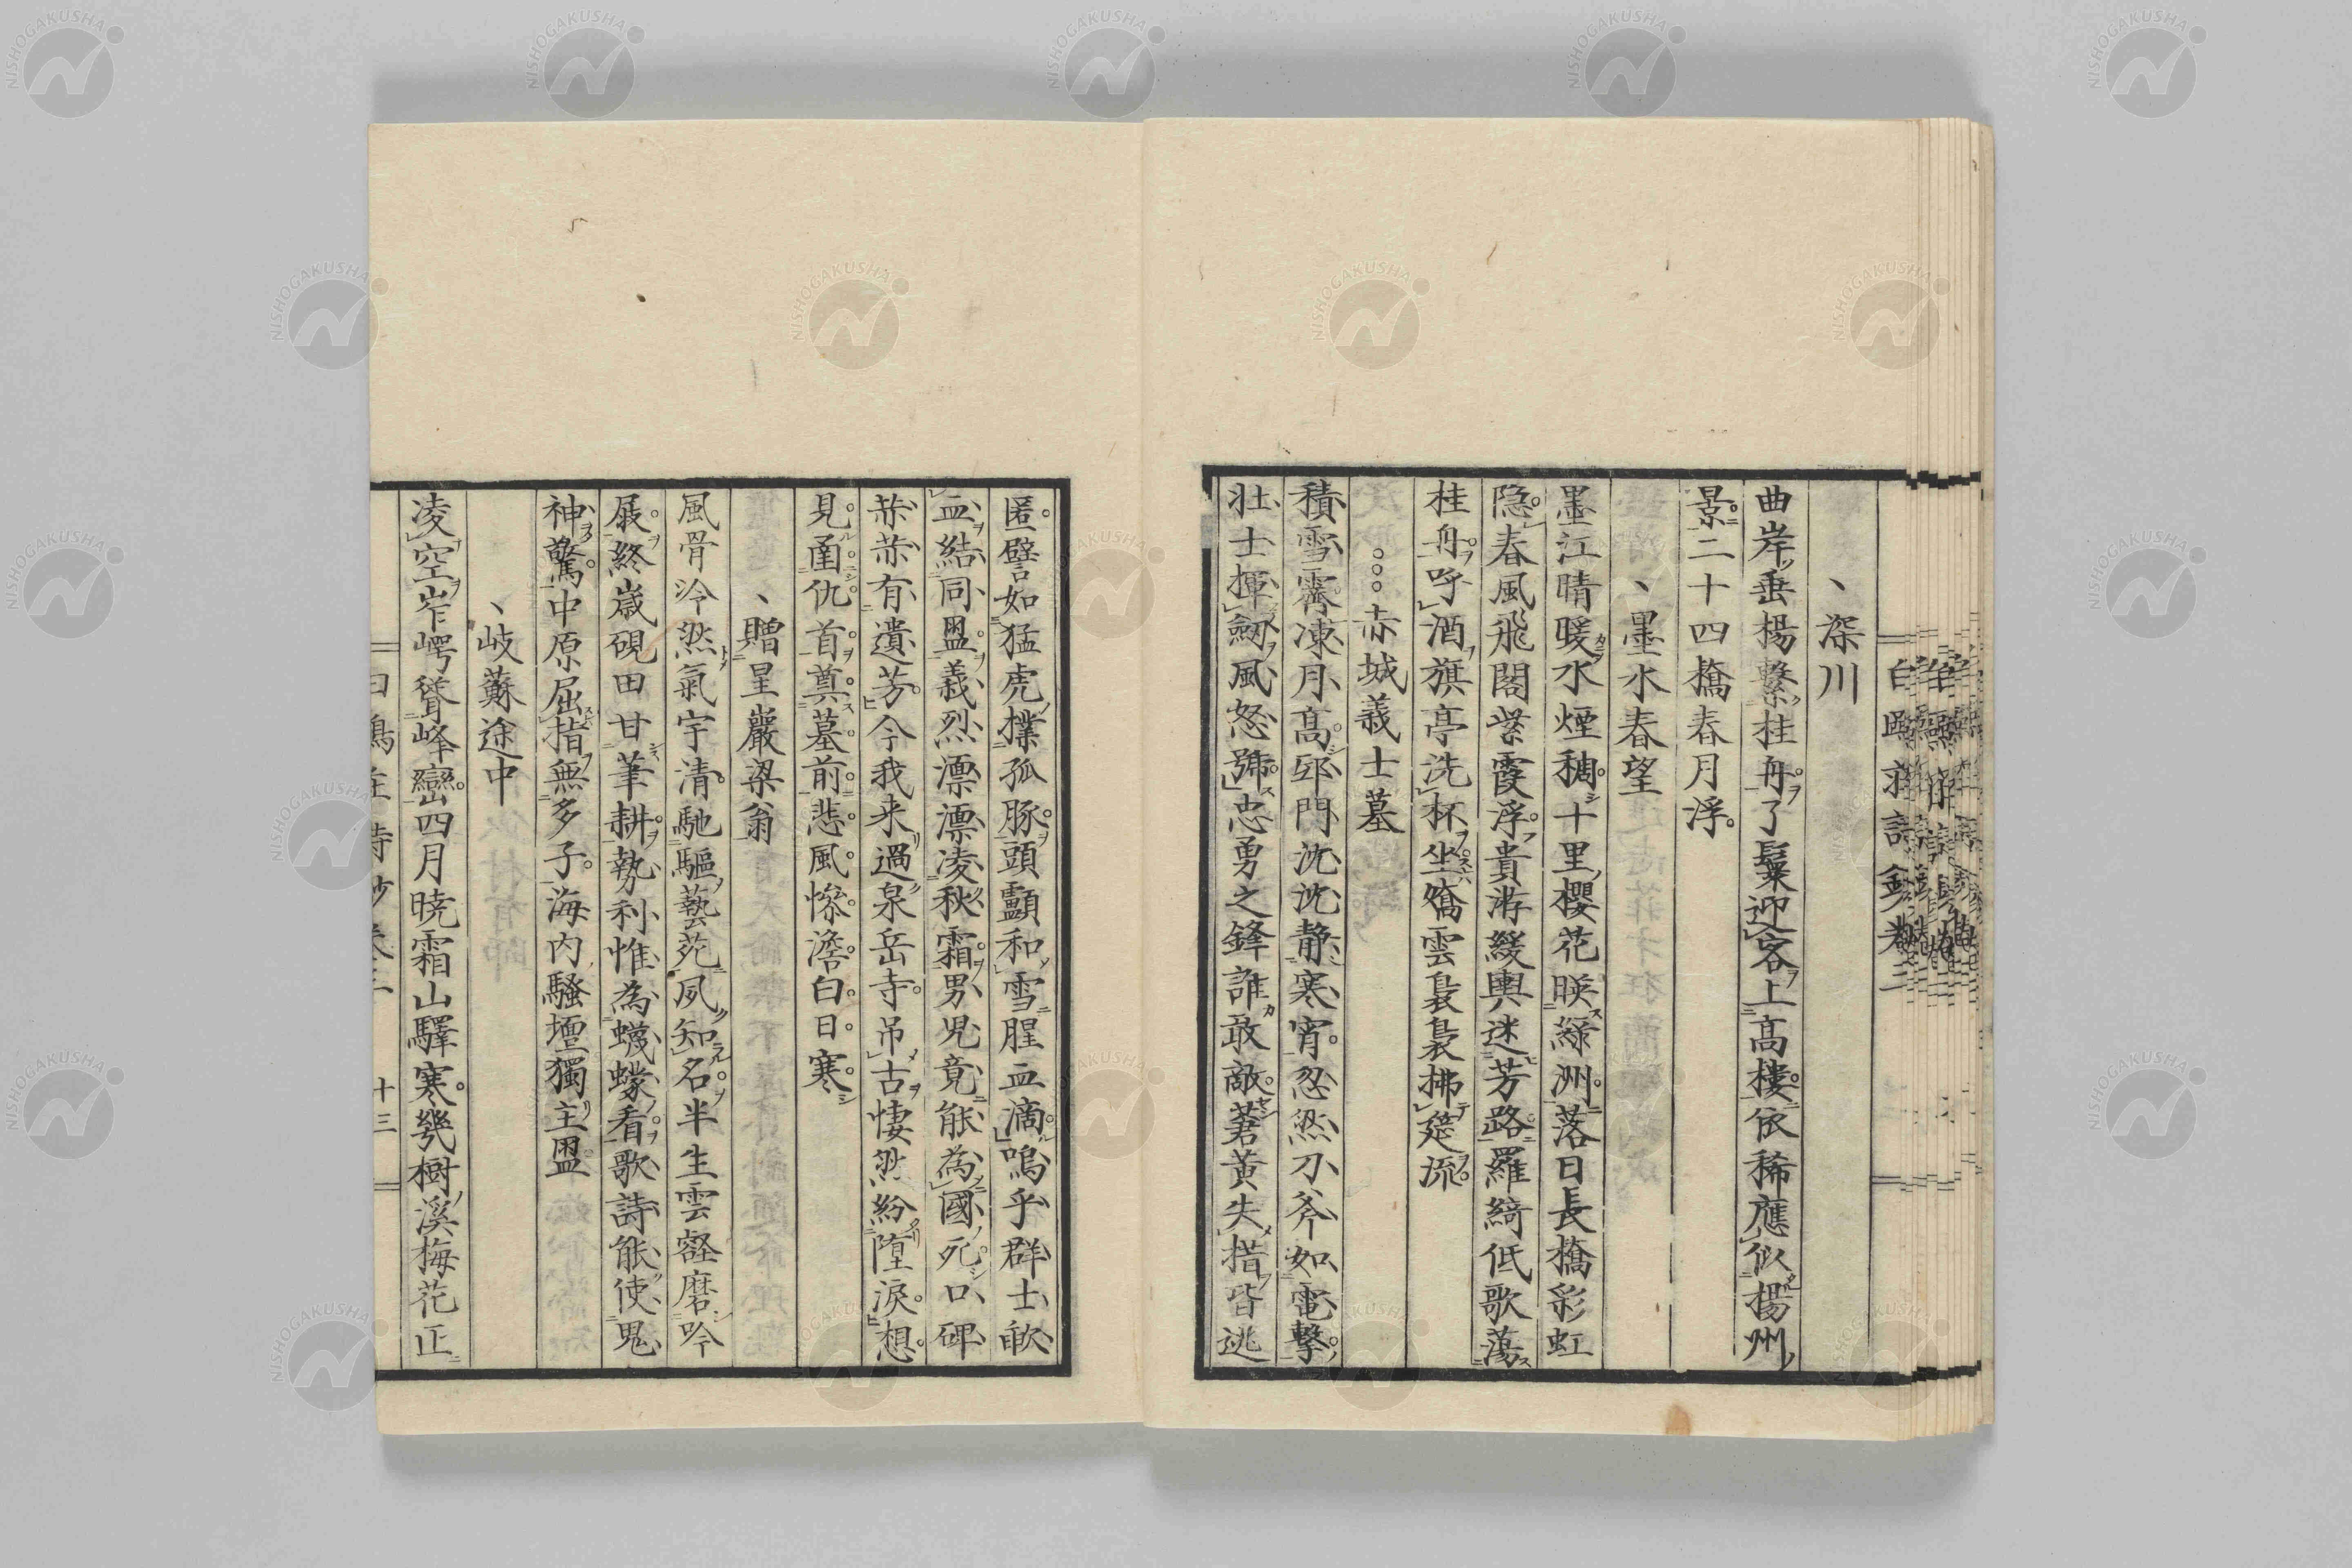 深川
曲岸垂楊繋桂舟了鬟迎客上高樓依稀應似楊州
景二十四橋春月浮
墨水春望
墨江晴暖水煙稠十里櫻花暎緑洲落日長橋彩虹
隠春風飛閣紫霞浮貴游緩輿迷芳路羅綺低歌蕩
桂舟呼酒旗亭洗杯坐嬌雲裊裊拂筵流
赤城義士墓
積雪霽凍月高邸門沈沈静寒宵忽然刀斧如電撃
壮士揮劒風怒號忠勇之鋒誰敢敵蒼黄失措皆逃
匿譬如猛虎撲孤豚頭顱和雪腥血滴嗚乎群士歃
血結同盟義烈凛凛凌秋霜男児竟能為國死口碑
赫赫有遺芳今我来過泉岳寺吊古悽然紛堕涙想
見函仇首奠墓前悲風惨澹白日寒
贈星巖梁翁
風骨泠然氣宇清馳驅藝苑夙知名半生雲壑磨吟
屐終歳硯田甘筆耕勢利惟為蠛蠓看歌詩能使鬼
神驚中原屈指無多子海内騒壇獨主盟
岐蘇途中
凌空岝崿聳峰巒四月暁霜山驛寒幾樹溪梅花正
十三
NISHOGAKUSHA